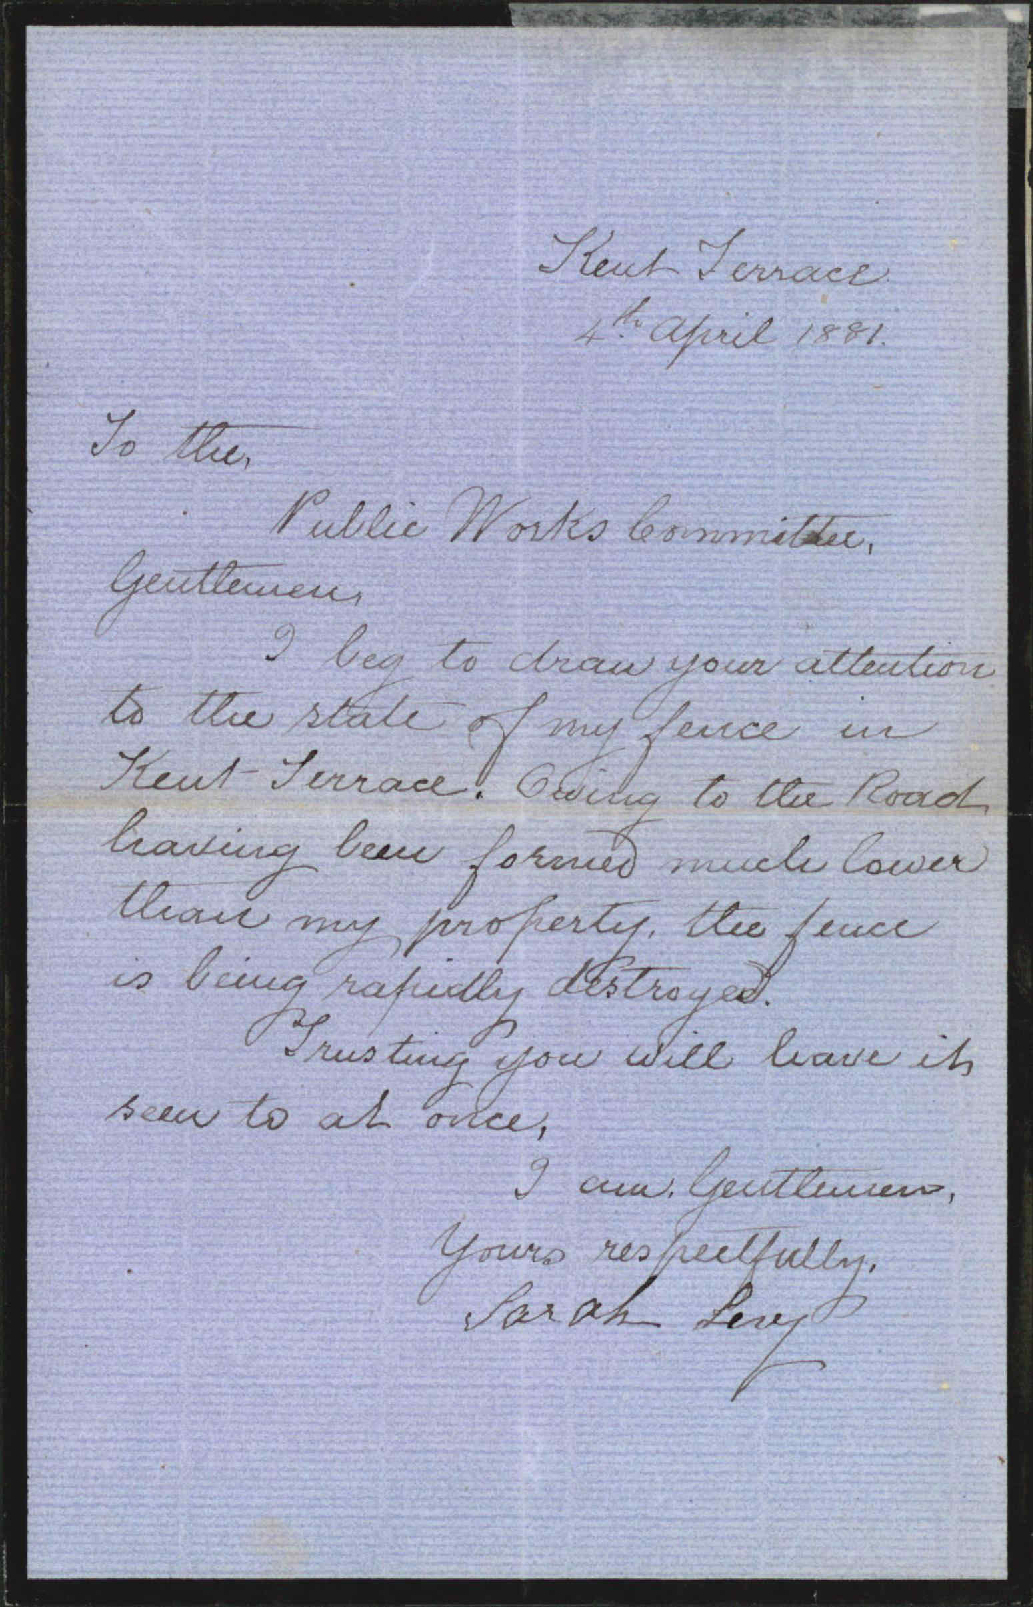 Kent Terrace
4th April 1881.
To the,
Public Works Committee,
Gentlemen,
I beg to draw your attention
to the state of my fence in
Kent Terrace. Owing to the Road
having been formed much lower
than my property, the fence
is being rapidly destroyed.
Trusting you will have it
seen to at once,
I am, Gentlemen,
Yours respectfully,
Sarah Levy